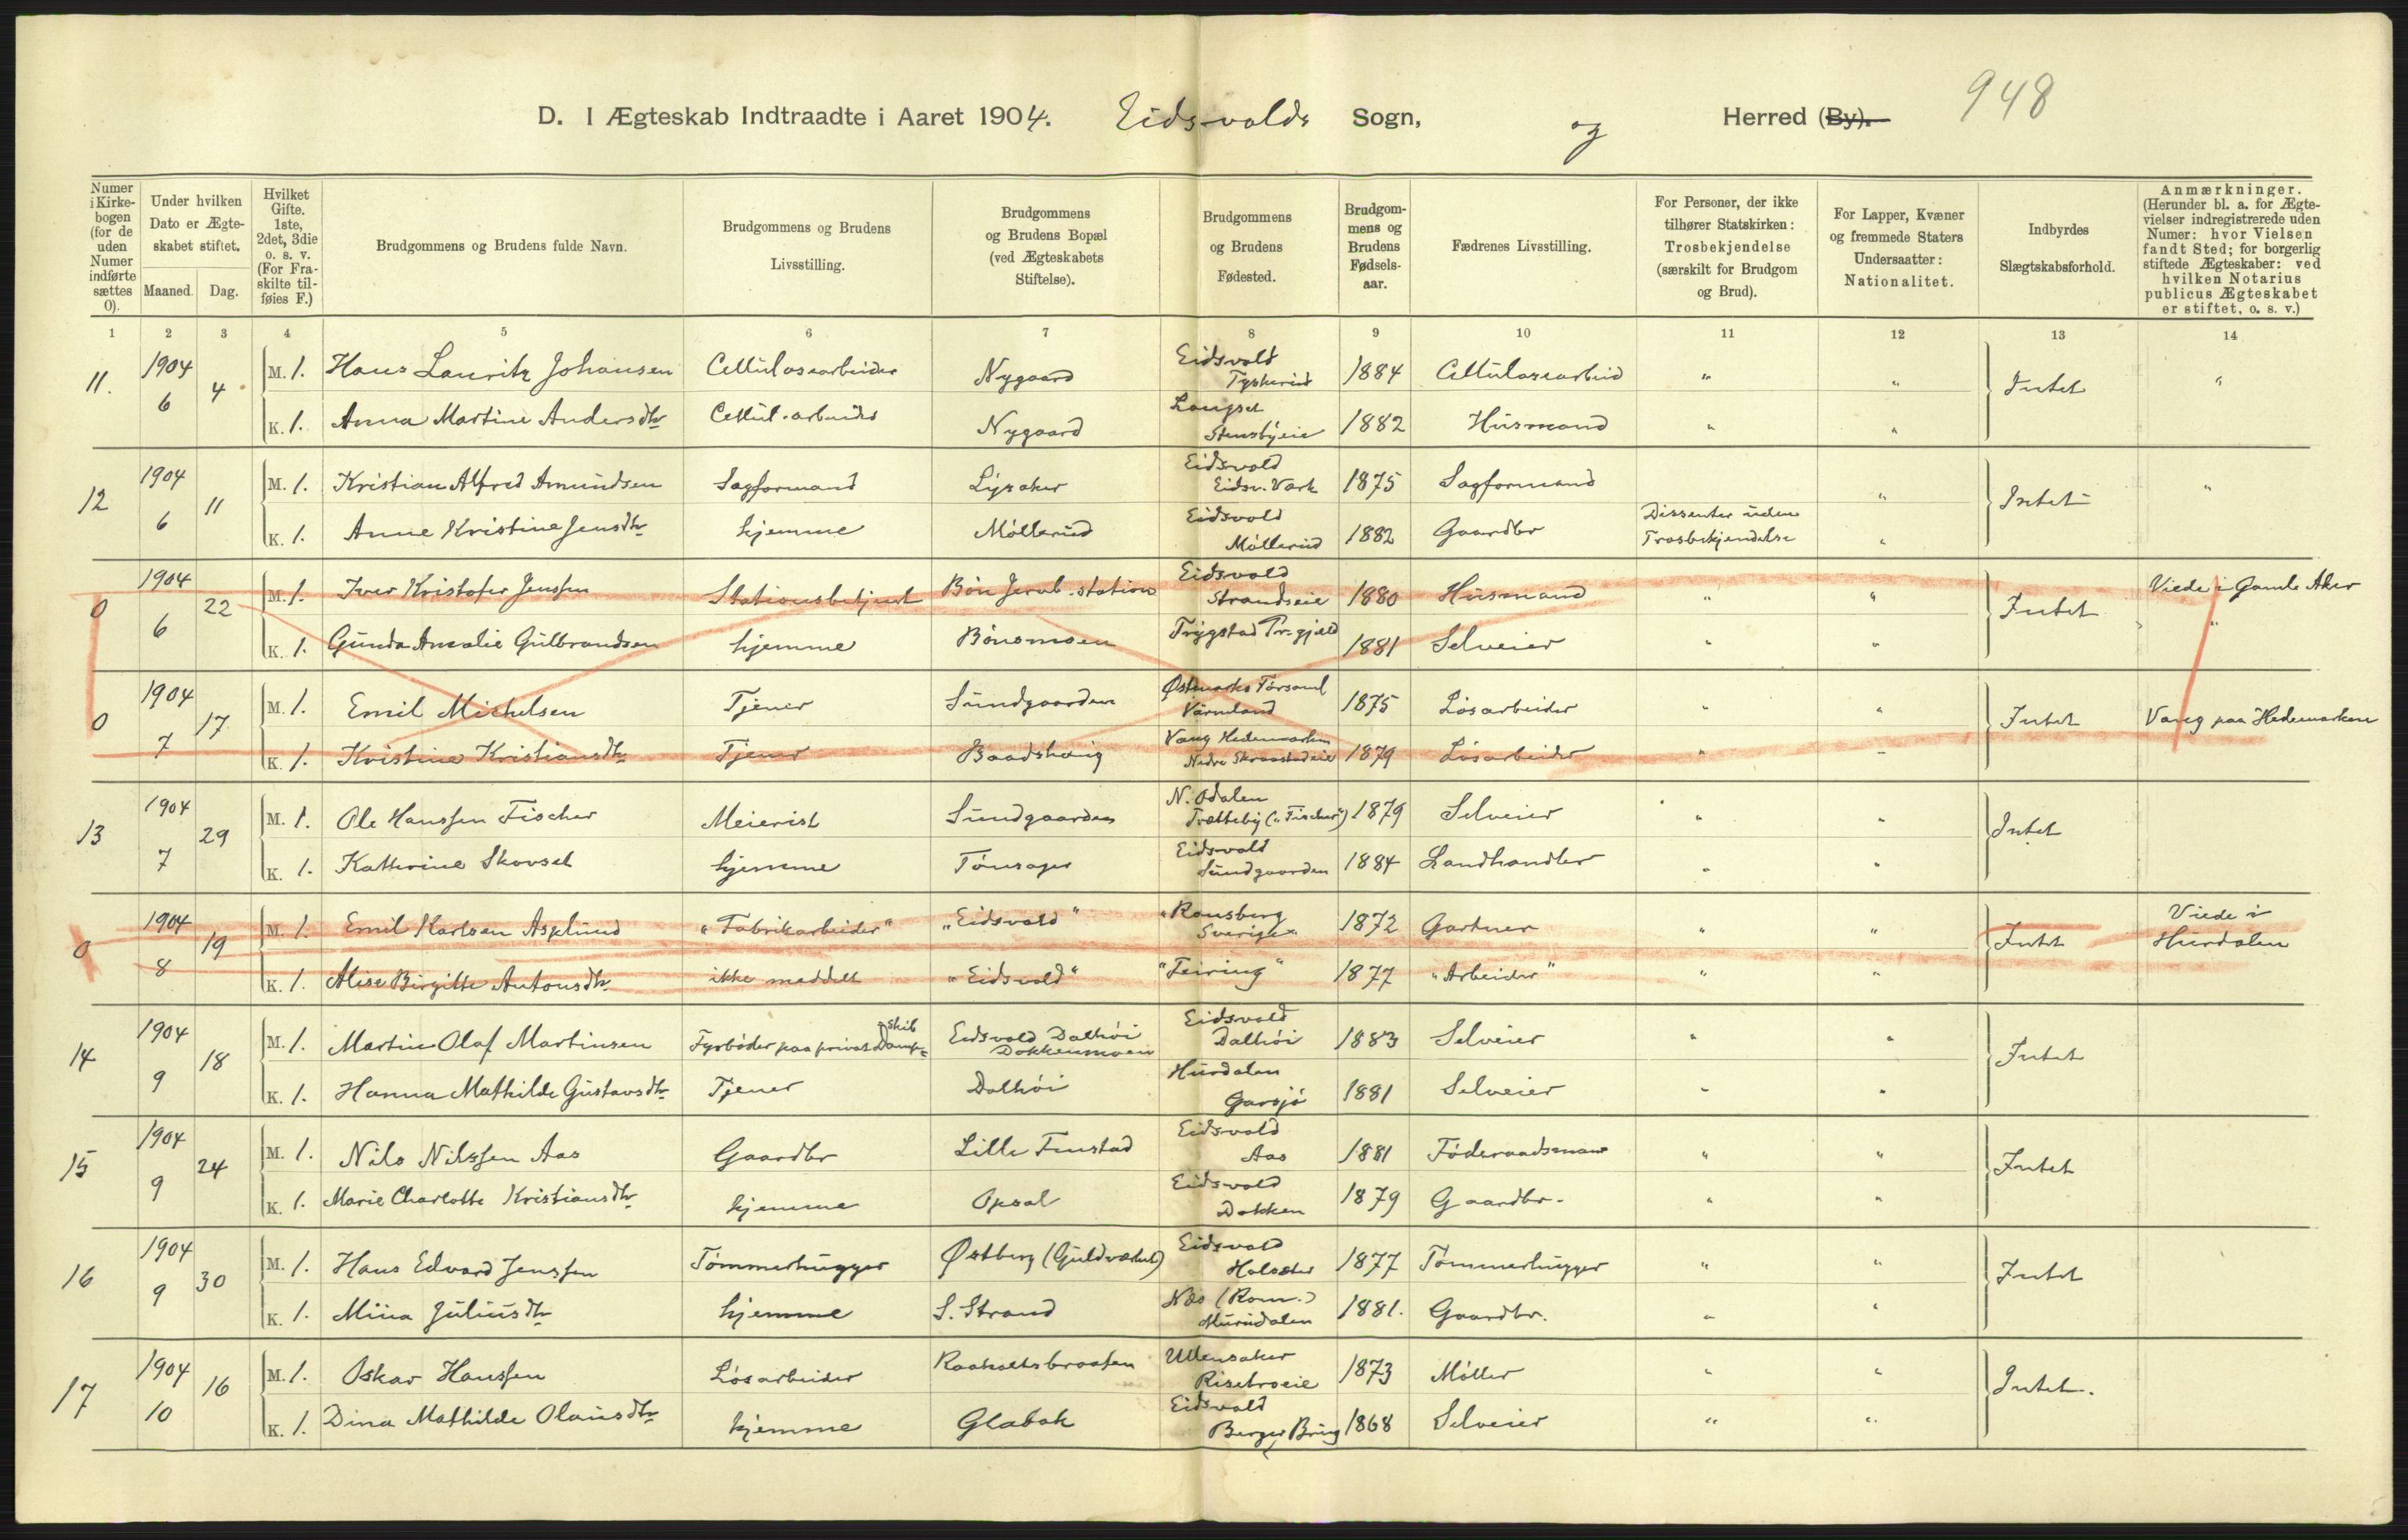 948
D. I Ægteskab Indtraadte i Aaret 1904. Eidsvolds Sogn, og Herred (By).
Numer i Kirkebogen (for de uden Numer indførte sættes 0).
Under hvilken Dato er Ægteskabet stiftet.
Maaned. Dag.
Hvilket Gifte. 1ste, 2det, 3die o. s. v. (For Fraskilte tilføies F.)
Brudgommens og Brudens fulde Navn.
Brudgommens og Brudens Livsstilling.
Brudgommens og Brudens Bopæl (ved Ægteskabets Stiftelse).
Brudgommens og Brudens Fødested.
Brudgommens og Brudens Fødselsaar.
Fædrenes Livsstilling.
For Personer, der ikke tilhører Statskirken: Trosbekjendelse (særskilt for Brudgom og Brud).
For Lapper, Kvæner og fremmede Staters Undersaatter: Nationalitet.
Indbyrdes Slægtskabsforhold.
Anmærkninger. (Herunder bl. a. for Ægtevielser indregistrerede uden Numer: hvor Vielsen fandt Sted; for borgerlig stiftede Ægteskaber: ved hvilken Notarius publicus Ægteskabet er stiftet, o. s. v.)
1 2 3 4 5 6 7 8 9 10 11 12 13 14
11. 1904 6 4 M. 1. Hans Lauritz Johansen Cellulosearbeider Nygaard Eidsvold Tyskerud 1884 Cellulosearbeid " " Intet "
K. 1. Anna Martine Andersdtr Cellul.arbeider Nygaard Langset Stensbyeie 1882 Husmand " "
12 1904 6 11 M. 1. Kristian Alfred Amundsen Sagformand Lysaker Eidsvold Eidsv. Værk 1875 Sagformand " Intet "
K. 1. Anne Kristine Jensdtr hjemme Møllerud Eidsvold Møllerud 1882 Gaardbr Dissenter uden Trosbekjendelse "
0 1904 6 22 M. 1. Iver Kristofer Jenssen Stationsbetjent Bøn Jernb.station Eidsvold Strandseie 1880 Husmand " " Intet Viede i Gamle Aker
K. 1. Gunda Amalie Gulbrandsen hjemme Bønsmoen Trygstad Pr.gjæld 1881 Selveier " " "
0 1904 7 17 M. 1. Emil Michelsen Tjener Sundgaarden Østmarks Forsaml Värmland 1875 Løsarbeider " " Intet Vang paa Hedemarken
K. 1. Kristine Kristiansdtr Tjener Baadshaug Vang Hedemarken Nedre Skraastadeie 1879 Løsarbeider " "
13 1904 7 29 M. 1. Ole Hanssen Fischer Meierist Sundgaarden N. Odalen Trætteby ("Fischer") 1879 Selveier " " Intet
K. 1. Kathrine Skovset hjemme Tønsager Eidsvold Sundgaarden 1884 Landhandler " "
0 1904 8 19 M. 1. Emil Karlsen Asplund "Fabrikarbeider" "Eidsvold" "Ransberg Sverige" 1872 Gartner " " Intet Viede i Hurdalen
K. 1. Alise Birgitte Antonsdtr ikke meddelt "Eidsvold" "Feiring" 1877 "Arbeider" " "
14 1904 9 18 M. 1. Martin Olaf Martinsen Fyrbøder paa privat Dampskib Eidsvold Dalhøi Dokkenmoen Eidsvold Dalhøi 1883 Selveier " " Intet
K. 1. Hanna Mathilde Gustavsdtr Tjener Dalhøi Hurdalen Garsjø 1881 Selveier " "
15 1904 9 24 M. 1. Nils Nilssen Aas Gaardbr Lille Finstad Eidsvold Aas 1881 Føderaadsmand " " Intet
K. 1. Marie Charlotte Kristiansdtr hjemme Opsal Eidsvold Dokken 1879 Gaardbr. " "
16 1904 9 30 M. 1. Hans Edvard Jenssen Tømmerhugger Østberg (Guldværket) Eidsvold Holseter 1877 Tømmerhugger " " Intet
K. 1. Mina Juliusdtr hjemme S. Strand Næs (Rom.) Murudalen 1881. Gaardbr. " "
17 1904 10 16 M. 1. Oskar Hanssen Løsarbeider Raaholtsbraaten Ullensaker Risebroeie 1873 Møller " " Intet.
K. 1. Dina Mathilde Olausdtr hjemme Glabak Eidsvold Berger Bring 1868 Selveier " "